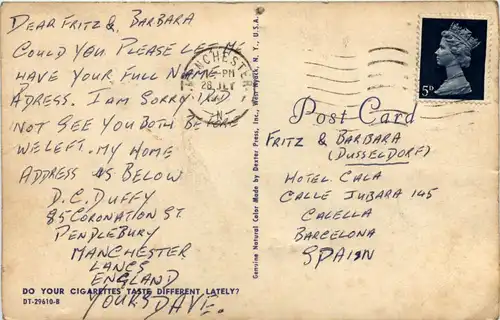 DEAR FRITZ & BARBARA
COULD YOU PLEASE LET ME
HAVE YOUR FULL NAME &
ADRESS. I AM SORRY I DID
NOT SEE YOU BOTH BEFORE
WE LEFT. MY HOME
ADDRESS AS BELOW
D.C. DUFFY
85 CORONATION ST.
PENDLEBURY
MANCHESTER
LANCS
ENGLAND
YOURS DAVE.
DO YOUR CIGARETTES TASTE DIFFERENT LATELY?
DT-29610-B
MANCHESTER
-PM
28
Genuine Natural Color Made by Dexter Press, Inc., West Nyack, N. Y., U.S.A.
5D
Post Card
FRITZ & BARBARA
(DUSSELDORF)
HOTEL CALA
CALLE JUBARA 145
CALELLA
BARCELONA
SPAIN